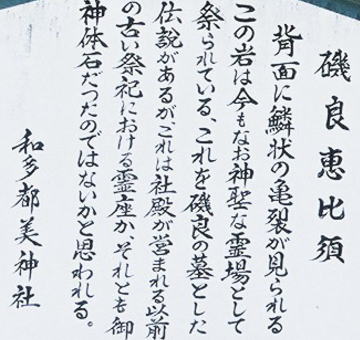 磯良恵比須
背面に鱗状の亀裂が見られる
この岩は今もなお神聖な霊場として
祭られている、これを磯良の墓とした
伝説があるが、これは社殿が営まれる以前
の古い祭祀における霊座か、それとも御
神体石だったのではないかと思われる。
和多都美神社